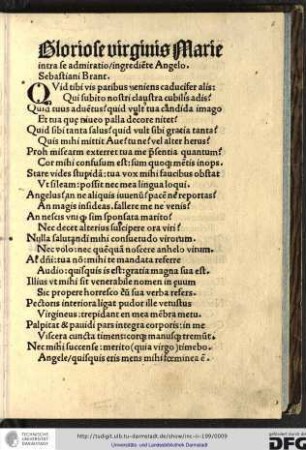 Gloriose virginis Marie
intra se admiratio/ingrediēte Angelo.
Sebastiani Brant.
QVid tibi vis paribus veniens caducifer alis:
Qui subito nostri claustra cubilis adis?
Quid tuus aduētus/quid vult tua cādida imago
Et tua que niueo palla decore nitet?
Quid sibi tanta salus/quid vult sibi gratia tanta?
Quis mihi mittit Aue/tu ne/vel alter herus?
Proh miseram exterret tua me p̄sentia quantum?
Cor mihi confusum est:sum quoq̄ mētis inops.
Stare vides stupidā:tua vox mihi faucibus obstat
Vt sileam:possit nec mea lingua loqui.
Angelus/an ne aliquis iuuenū/pace nē reportas?
An magis insideas/fallere me ne venis?
An nescis vni q̄ sim sponsata marito?
Nec decet alterius suscipere ora viri?
Nulla salutandi/mihi consuetudo virorum.
Nec volo:nec quēquā noscere anhelo virum.
At dn̄i:tua nō:mihi te mandata referre
Audio:quisquis is est:gratia magna sua est.
Illius vt mihi sit venerabile nomen in quum
Sic propere horresco cū sua verba refers.
Pectoris interiora ligat pudor ille vetustus
Virgineus:trepidant en mea mēbra metu.
Palpitat & pauidi pars integra corporis:in me
Viscera cuncta timent:corq̄ manusq̄ tremūt.
Nec mihi succense:merito(quia virgo)timebo.
Angele/quisquis eris mens mihi fœminea ē.
TECHNISCHE
UNIVERSITÄT
DARMSTADT
http://tudigit.ulb.tu-darmstadt.de/show/inc-iii-199/0009
Universitäts- und Landesbibliothek Darmstadt
DFG